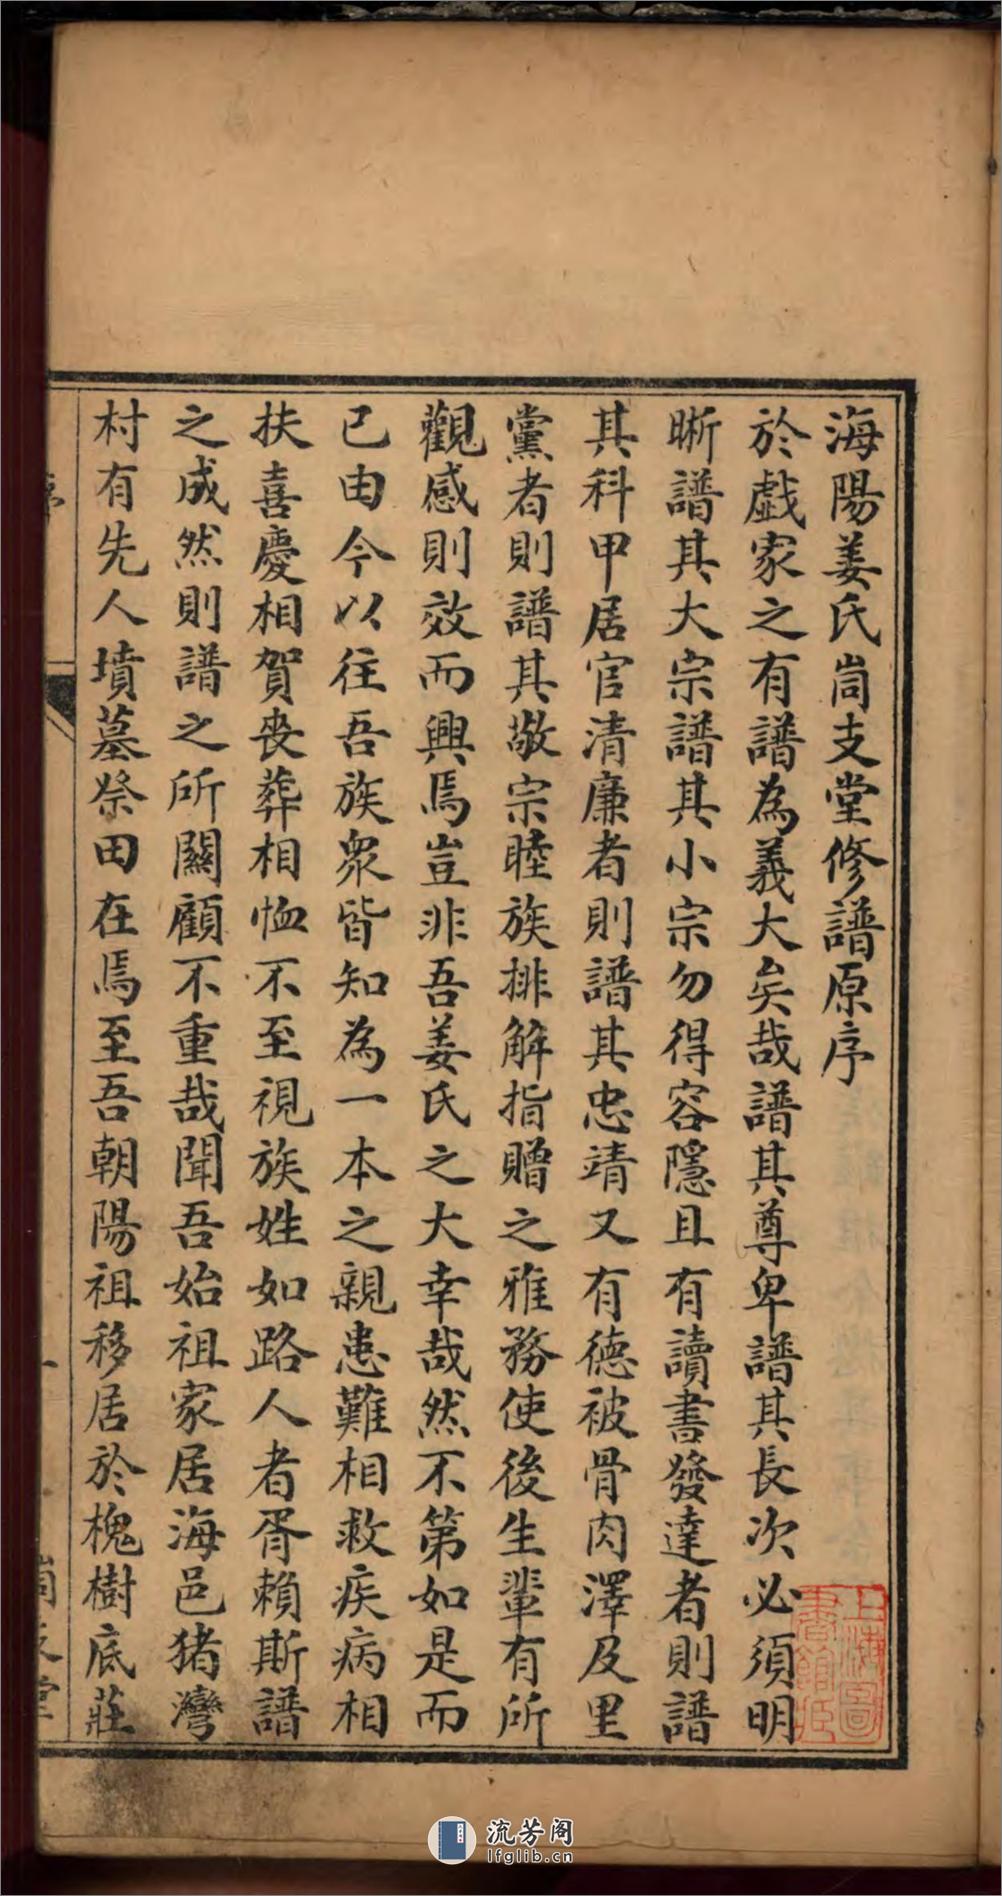 海陽姜氏尚支堂修譜原序
於戯家之有譜為義大矣哉譜其尊卑譜其長次必須明
晰譜其大宗譜其小宗勿得容隱且有讀書發達者則譜
其科甲居官清廉者則譜其忠靖又有德被骨肉澤及里
黨者則譜其敬宗睦族排解指贈之雅務使後生輩有所
觀感則效而興焉豈非吾姜氏之大幸哉然不第如是而
已由今以往吾族衆皆知為一本之親患難相救疾病相
扶喜慶相賀喪葬相恤不至視族姓如路人者胥賴斯譜
之成然則譜之所關顧不重哉聞吾始祖家居海邑猪灣
村有先人墳墓祭田在焉至吾朝陽祖移居於槐樹底莊
上海圖書館藏
流芳阁
lfglib.cn